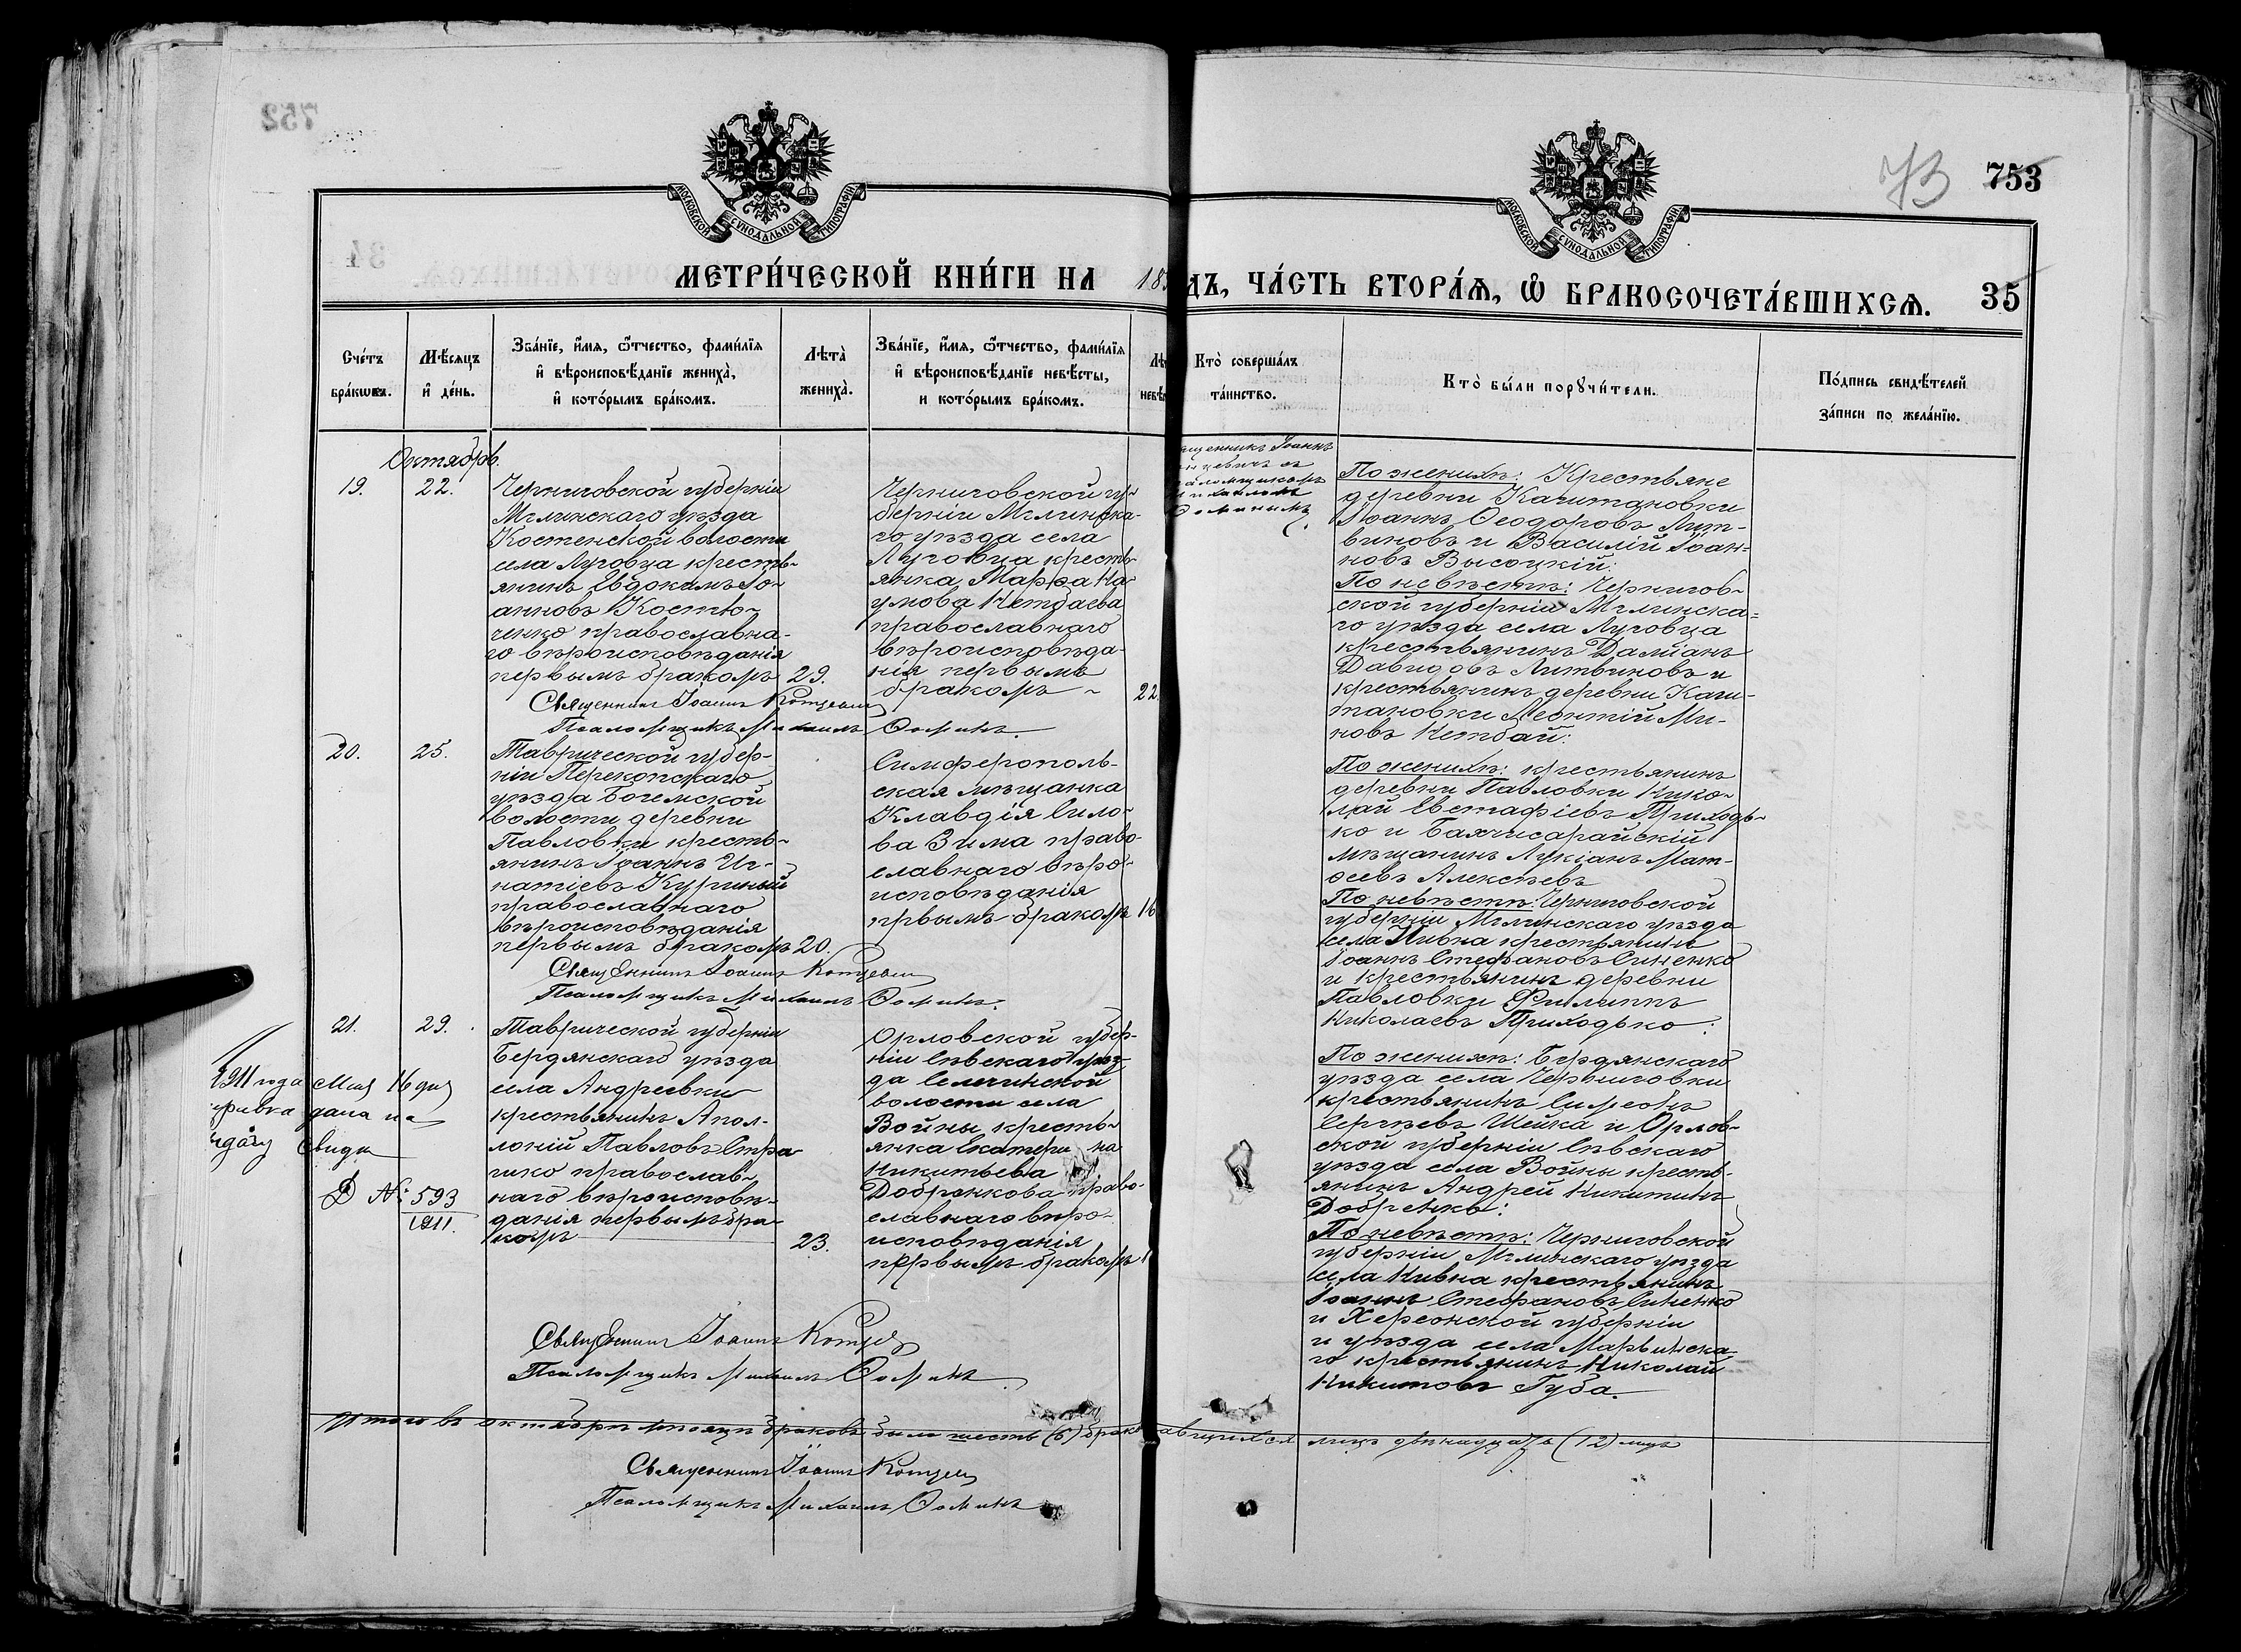 753
73
МОСКОВСКОЙ СѴНОДАЛЬНОЙ ТИПОГРАФІИ
МОСКОВСКОЙ СѴНОДАЛЬНОЙ ТИПОГРАФІИ
МЕТРИ́ЧЕСКОЙ КНИ́ГИ НА 18
ДЪ, ЧА́СТЬ ВТОРА́Я, Ѽ БРАКОСОЧЕТА́ВШИХСЯ. 35
Сче́тъ
бра́кωвъ.
Мѣ́сяцъ
и҆ де́нь.
Зва́нїе, и҆́мя, ѻ҆́тчество, фами́лїя
и҆ вѣроисповѣ́данїе жениха̀,
и҆ кото́рымъ бра́комъ.
Лѣта̀
жениха̀.
Зва́нїе, и҆́мя, ѻ҆́тчество, фами́лїя
и҆ вѣроисповѣ́данїе невѣ́сты,
и кото́рымъ бра́комъ.
Кто̀ соверша́лъ
та́инство.
Кто̀ бы́ли порꙋчи́тели.
По́дпись свидѣ́телей
за́писи по жела́нїю.
Октябрь.
19.
22.
Черниговской губерніи
Мглинскаго уѣзда
Костенской волости
села Луговца кресть-
янинъ Евдокимъ Іо-
анновъ Костю-
ченко православна-
го вѣроисповѣданія
первымъ бракомъ
29.
Черниговской гу-
берніи Мглинска-
го уѣзда села
Луговца кресть-
янка Марфа На-
умова Нетбаева
православнаго
вѣроисповѣда-
нія первымъ
бракомъ
22.
щенникъ Іоаннъ
По женихѣ: Крестьяне
деревни Капитановки
Іоаннъ Ѳеодоровъ Лит-
виновъ и Василій Іоан-
новъ Высоцкій.
По невѣстѣ: Чернигов-
ской губерніи Мглинска-
го уѣзда села Луговца
крестьянинъ Даміанъ
Давидовъ Литвиновъ и
крестьянинъ деревни Капи-
тановки Леонтій Ми-
новъ Нетбай.
Священникъ Іоаннъ
Псаломщикъ Михаилъ Ѳоминъ.
20.
25.
Таврической губер-
ніи Перекопскаго
уѣзда Богемской
волости деревни
Павловки кресть-
янинъ Іоаннъ Иг-
натіевъ Купиный
православнаго
вѣроисповѣданія
первымъ бракомъ
20.
Симферополь-
ская мѣщанка
Клавдія Сило-
ва Зима право-
славнаго вѣро-
исповѣданія
првымъ бракомъ
16
По женихѣ: крестьянинъ
деревни Павловки Нико-
лай Евстафіевъ Приходь-
ко и Бахчисарайскій
мѣщанинъ Лукіанъ Мат-
ѳеевъ Алексѣевъ
По невѣстѣ: Черниговской
губерніи Мглинскаго уѣзда
села Нивна крестьянинъ
Іоаннъ Стефановъ Синенко
и крестьянинъ деревни
Павловки Филиппъ
Николаевъ Приходько.
Священникъ Іоаннъ
Псаломщикъ Михаилъ Ѳоминъ.
21.
29.
Таврической губерніи
Бердянскаго уѣзда
села Андреевки
крестьянинъ Апол-
лоній Павловъ Стра-
шко православ-
наго вѣроисповѣ-
данія первымъ бра-
комъ
23.
Орловской губер-
ніи Сѣвскаго уѣз-
да Селечинской
волости села
Войны кресть-
янка Екатерина
Никитьева
Добренкова право-
славнаго вѣро-
исповѣданія
первымъ бракомъ
По женихѣ: Бердянскаго
уѣзда села Черниговки
крестьянинъ Симеонъ
Сергѣевъ Шейка и Орлов-
ской губерніи Сѣвскаго
уѣзда села Войны кресть-
янинъ Андрей Никитинъ
Добренко.
По невѣстѣ: Черниговской
губерніи Мглинскаго уѣзда
села Нивна крестьянинъ
Іоаннъ Стефановъ Синенко
и Херсонской губерніи
и уѣзда села Марьинска-
го крестьянинъ Николай
Никитовъ Губа.
1911 года Мая 16 дня
дана на
№ 593
1911.
Священникъ Іоаннъ
Псаломщикъ Михаилъ Ѳоминъ
Итого въ октябрѣ мѣсяцѣ браковъ было шесть (6) лицъ двѣнадцать (12) лицъ
Священникъ Іоаннъ
Псаломщикъ Михаилъ Ѳоминъ